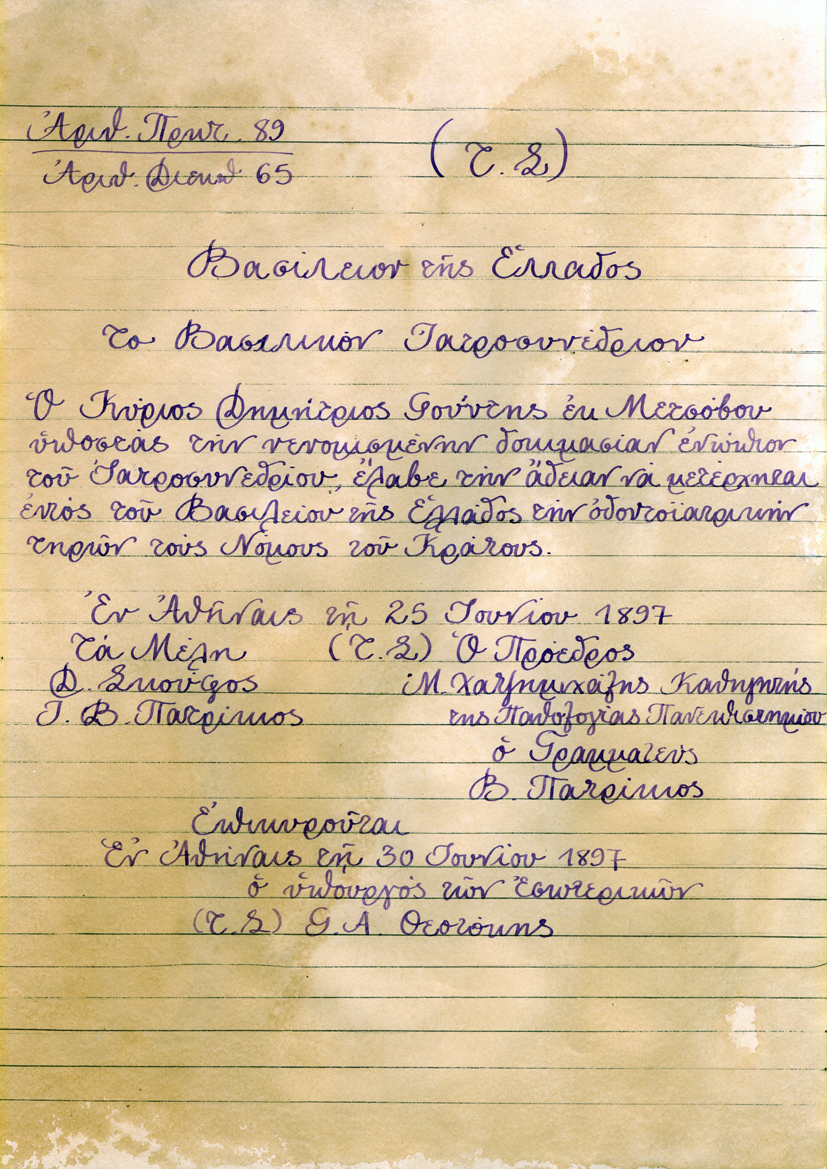 Ἀριθ. Πρωτ. 89
(Τ. Σ)
Ἀριθ. Διεκπ 65
Βασίλειον τῆς Ἑλλάδος
Το Βασιλικὸν Ἰατροσυνέδριον
Ὁ Κύριος Δημήτριος Γούντης ἐκ Μετσόβου
ὑποστὰς τὴν νενομισμένην δοκιμασίαν ἐνώπιον
τοῦ Ἰατροσυνεδρίου, ἔλαβε τὴν ἄδειαν νὰ μετέρχηται
ἐντὸς τοῦ Βασιλείου τῆς Ἑλλάδος τὴν ὀδοντοϊατρικὴν
τηρῶν τοὺς Νόμους τοῦ Κράτους.
Ἐν Ἀθήναις τῇ 25 Ἰουνίου 1897
Τὰ Μέλη (Τ. Σ) Ὁ Πρόεδρος
Δ. Σκούφος Μ. Χατζημιχάλης Καθηγητής
Γ. Β. Πατρίκιος της Παθολογίας Πανεπιστημίου
ὁ Γραμματεὺς
Β. Πατρίκιος
Ἐπικυροῦται
Ἐν Ἀθήναις τῇ 30 Ἰουνίου 1897
ὁ ὑπουργὸς τῶν Ἐσωτερικῶν
(Τ. Σ) Γ. Α. Θεοτόκης